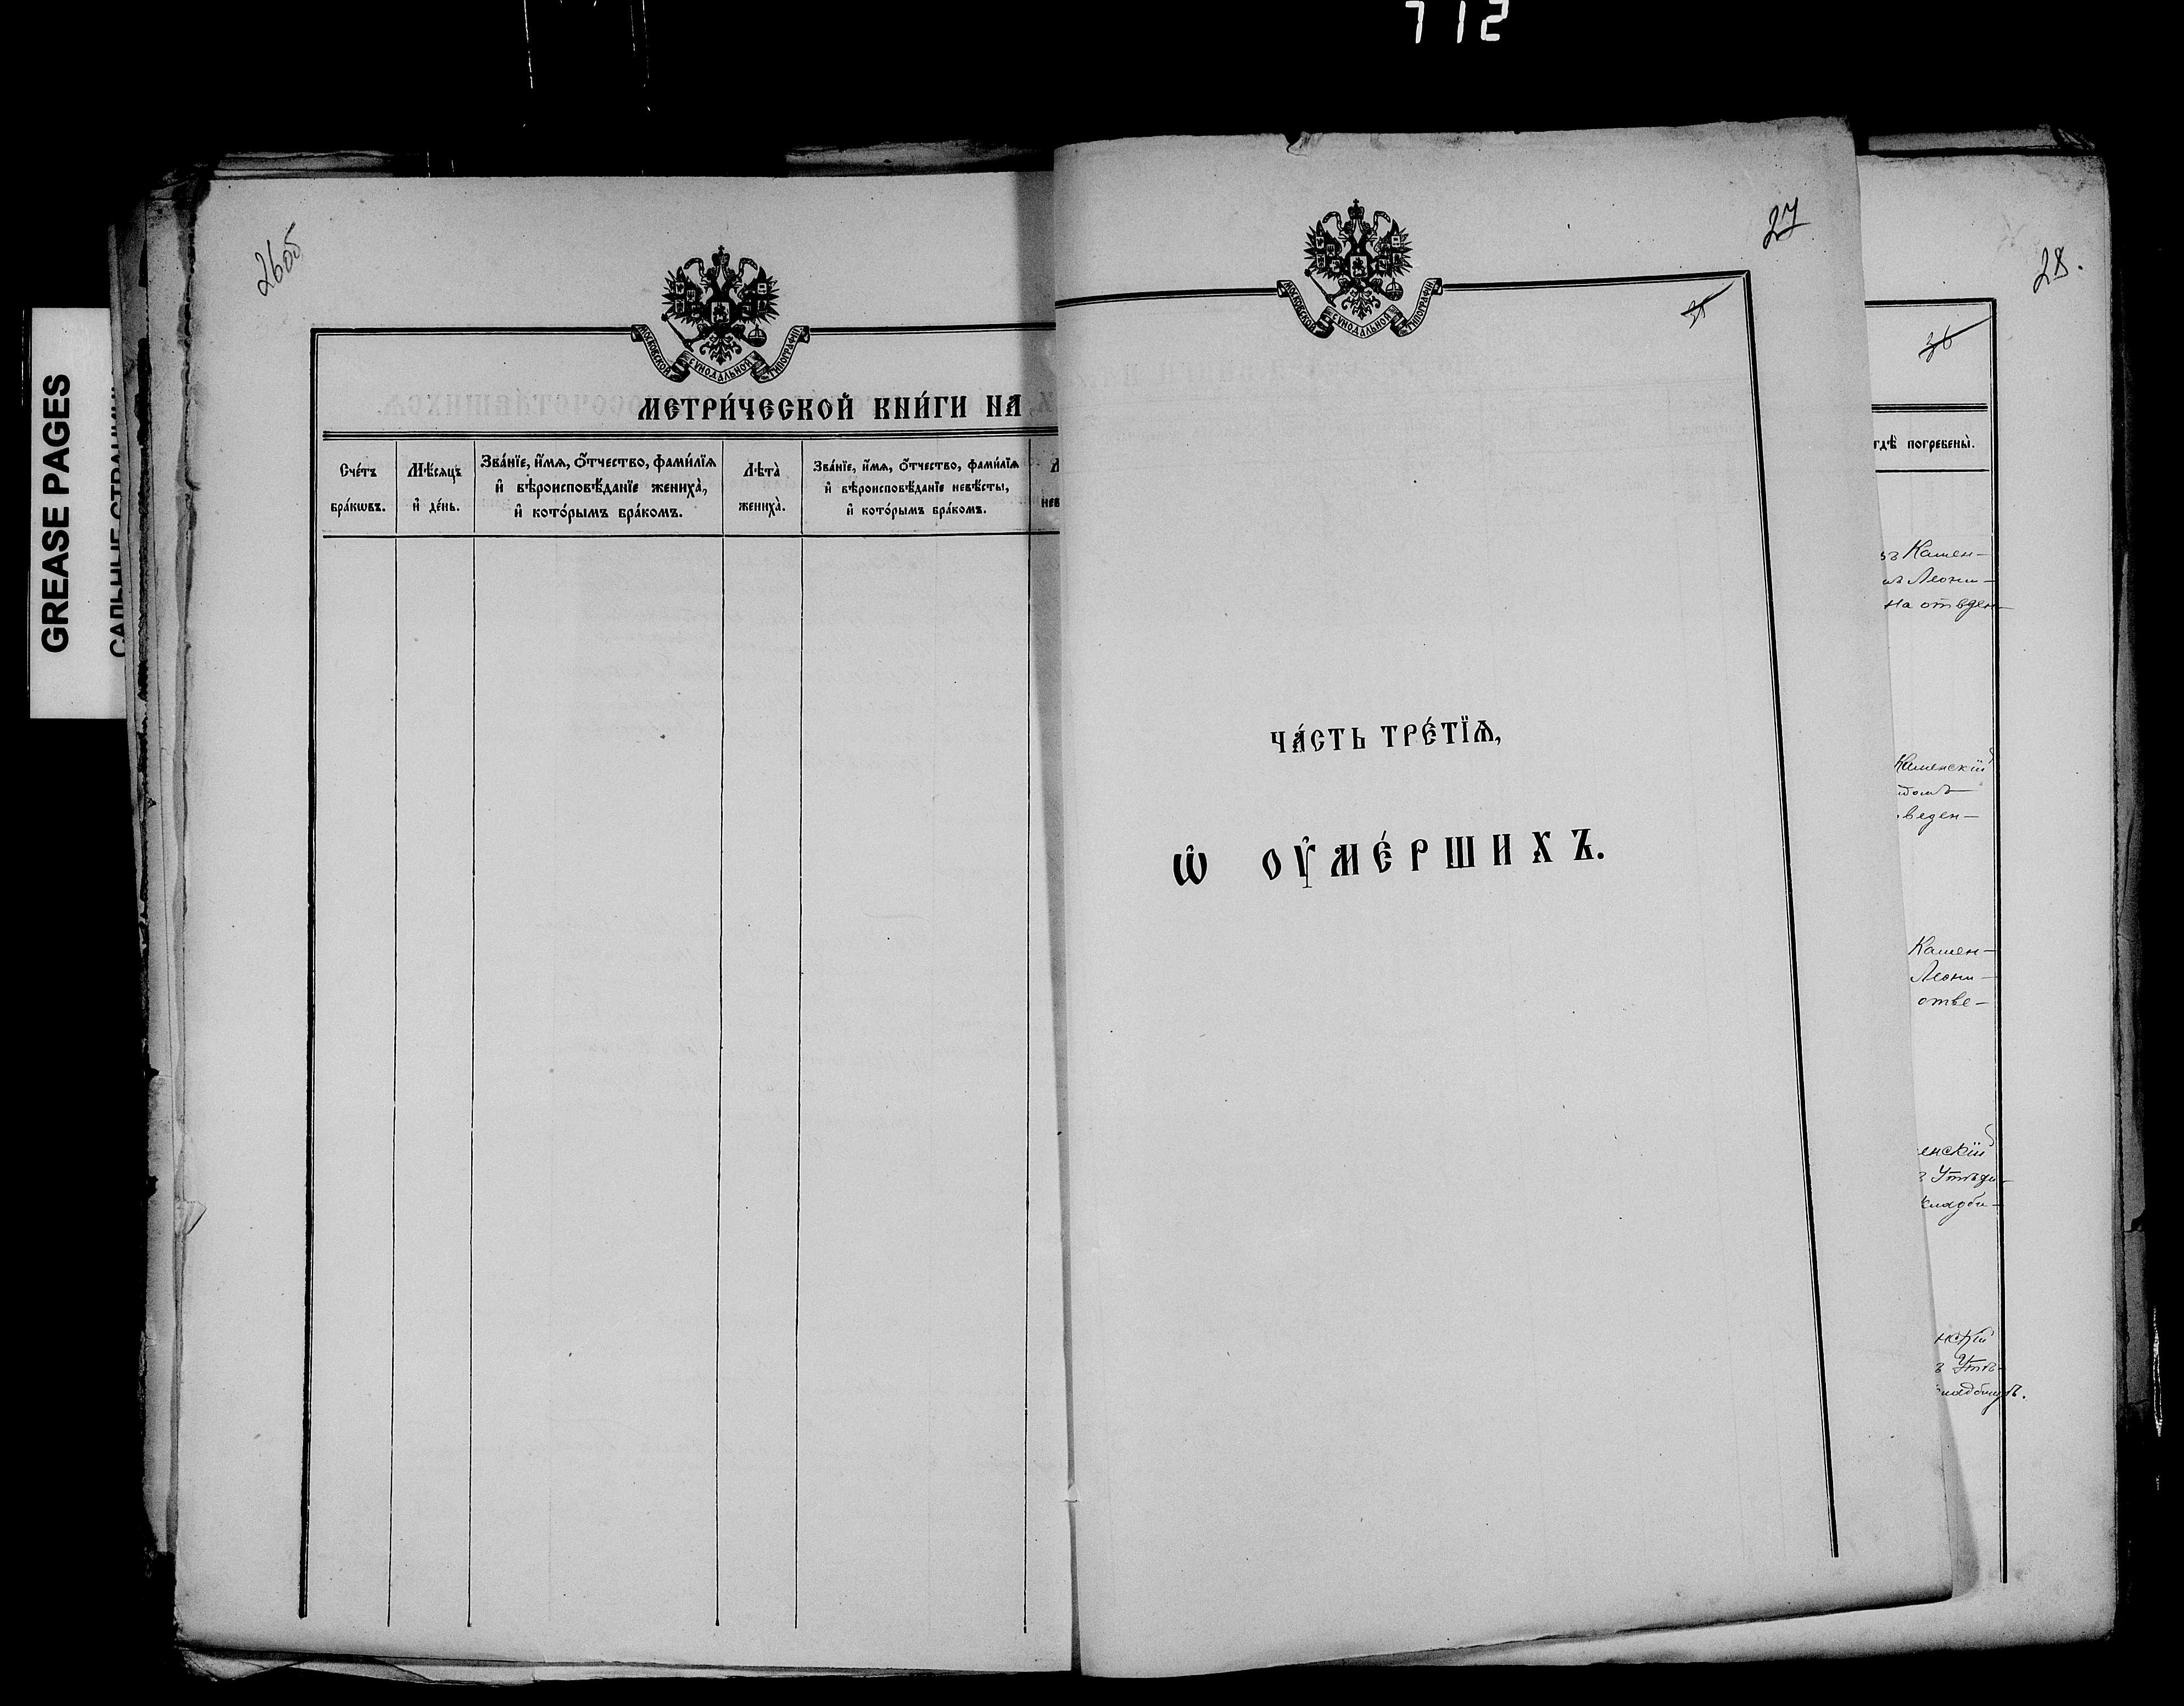 712
GREASE PAGES
26об
МОСКОВСКОЙ СѴНОДАЛЬНОЙ ТИПОГРАФІИ
МЕТРИ́ЧЕСКОЙ КНИ́ГИ НА
Сче́тъ бра́кѡвъ.
Мѣ́сяцъ и҆ де́нь.
Зва́нїе, и҆́мѧ, ѻ҆́тчество, фами́лїѧ
и҆ вѣроисповѣ́данїе жениха̀,
и҆ кото́рымъ бра́комъ.
Лѣта̀ жениха̀.
Зва́нїе, и҆́мѧ, ѻ҆́тчество, фами́лїѧ
и҆ вѣроисповѣ́данїе невѣ́сты,
и҆ кото́рымъ бра́комъ.
27
МОСКОВСКОЙ СѴНОДАЛЬНОЙ ТИПОГРАФІИ
ЧА́СТЬ ТРЕ́ТЇѦ,
Ѡ҆ ОУ҆МЕ́РШИХЪ.
28.
36
гдѣ̀ погребены̀.
Камен-
Леони-
на отведен-
Каменскій
веден-
Камен-
Леони-
отве-
енскій
Утѣ-